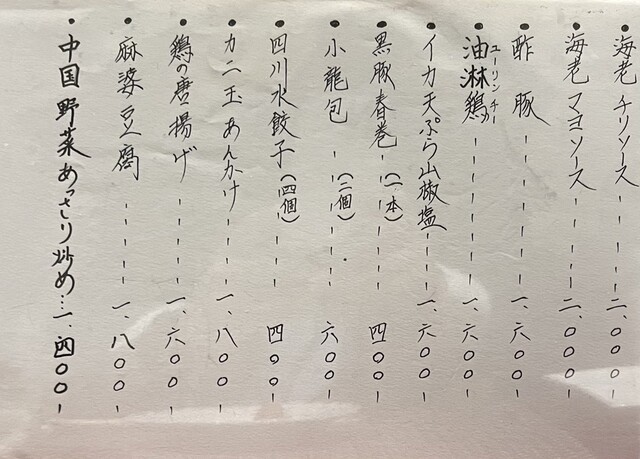 ・海老チリソース------二、〇〇〇-
・海老マヨソース-----二、〇〇〇-
・酢豚---------一、六〇〇-
・油淋鶏ユーリンチー-------一、六〇〇-
・イカ天ぷら山椒塩--一、六〇〇-
・黒豚春巻-(一本)-----四〇〇-
・小龍包--(二個)----六〇〇-
・四川水餃子(四個)---四〇〇-
・カニ玉あんかけ-----一、八〇〇-
・鶏の唐揚げ------一、六〇〇-
・麻婆豆腐------一、八〇〇-
・中国野菜あっさり炒め…一、四〇〇-